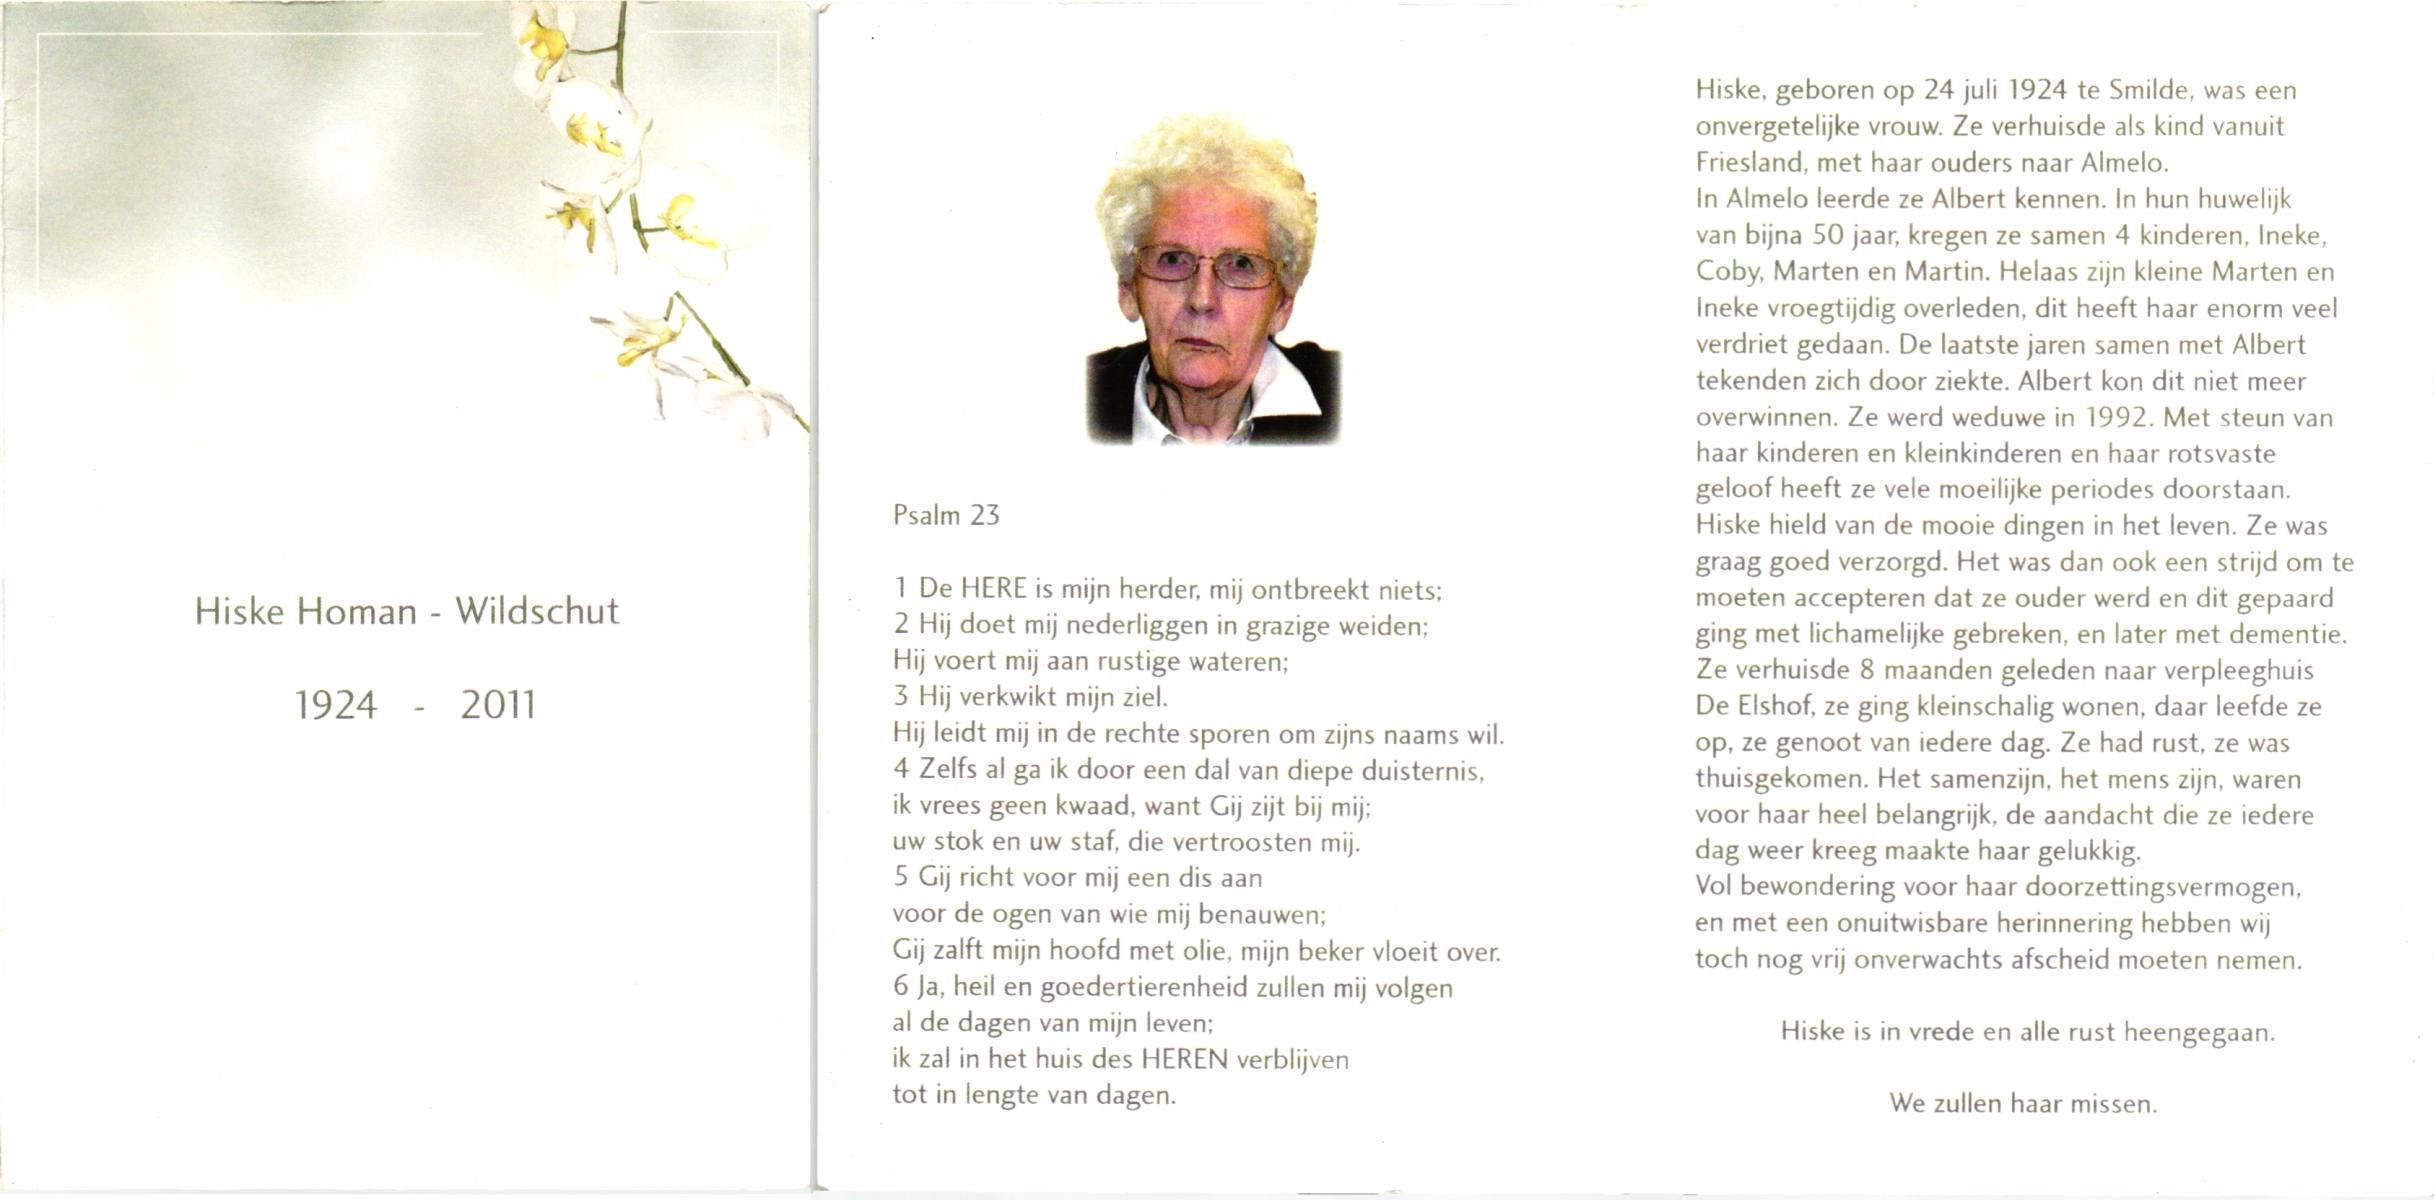 Hiske Homan - Wildschut
1924 - 2011
Psalm 23
1 De HERE is mijn herder, mij ontbreekt niets;
2 Hij doet mij nederliggen in grazige weiden;
Hij voert mij aan rustige wateren;
3 Hij verkwikt mijn ziel.
Hij leidt mij in de rechte sporen om zijns naams wil.
4 Zelfs al ga ik door een dal van diepe duisternis,
ik vrees geen kwaad, want Gij zijt bij mij;
uw stok en uw staf, die vertroosten mij.
5 Gij richt voor mij een dis aan
voor de ogen van wie mij benauwen;
Gij zalft mijn hoofd met olie, mijn beker vloeit over.
6 Ja, heil en goedertierenheid zullen mij volgen
al de dagen van mijn leven;
ik zal in het huis des HEREN verblijven
tot in lengte van dagen.
Hiske, geboren op 24 juli 1924 te Smilde, was een
onvergetelijke vrouw. Ze verhuisde als kind vanuit
Friesland, met haar ouders naar Almelo.
In Almelo leerde ze Albert kennen. In hun huwelijk
van bijna 50 jaar, kregen ze samen 4 kinderen, Ineke,
Coby, Marten en Martin. Helaas zijn kleine Marten en
Ineke vroegtijdig overleden, dit heeft haar enorm veel
verdriet gedaan. De laatste jaren samen met Albert
tekenden zich door ziekte. Albert kon dit niet meer
overwinnen. Ze werd weduwe in 1992. Met steun van
haar kinderen en kleinkinderen en haar rotsvaste
geloof heeft ze vele moeilijke periodes doorstaan.
Hiske hield van de mooie dingen in het leven. Ze was
graag goed verzorgd. Het was dan ook een strijd om te
moeten accepteren dat ze ouder werd en dit gepaard
ging met lichamelijke gebreken, en later met dementie.
Ze verhuisde 8 maanden geleden naar verpleeghuis
De Elshof, ze ging kleinschalig wonen, daar leefde ze
op, ze genoot van iedere dag. Ze had rust, ze was
thuisgekomen. Het samenzijn, het mens zijn, waren
voor haar heel belangrijk, de aandacht die ze iedere
dag weer kreeg maakte haar gelukkig.
Vol bewondering voor haar doorzettingsvermogen,
en met een onuitwisbare herinnering hebben wij
toch nog vrij onverwachts afscheid moeten nemen.
Hiske is in vrede en alle rust heengegaan.
We zullen haar missen.